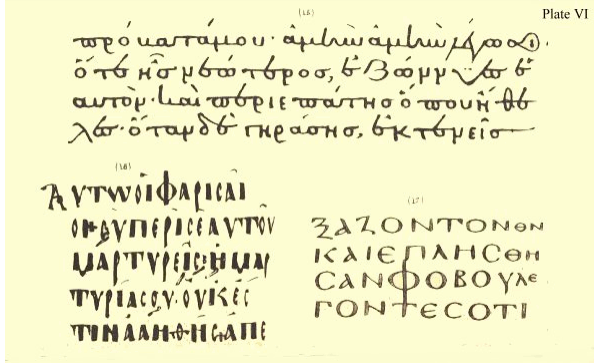 Plate VI
(15)
πρόβατά μου· ἀμὴν ἀμὴν λέγω σοι·
ὅτε ἦσ νεώτεροσ, ἐζώννυεσ ἑ
αυτὸν· καὶ περιεπάτησ ὅπου ἤθε
λεσ· ὅταν δὲ γηράσησ, ἐκτενεῖσ
(16)
ΑΥΤΩ ΟΙ ΦΑΡΙCΑΙ
ΟΙ CΥ ΠΕΡΙ CΕΑΥΤΟΥ
ΜΑΡΤΥΡΕΙC· Η ΜΑΡ
ΤΥΡΙΑ CΟΥ· ΟΥΚ ΕC
ΤΙΝ ΑΛΗΘΗC ΑΠΕ
(17)
ΞΑΖΟΝΤΟΝΘΝ
ΚΑΙΕΠΛΗCΘΗ
CΑΝΦΟΒΟΥΛΕ
ΓΟΝΤΕCΟΤΙ